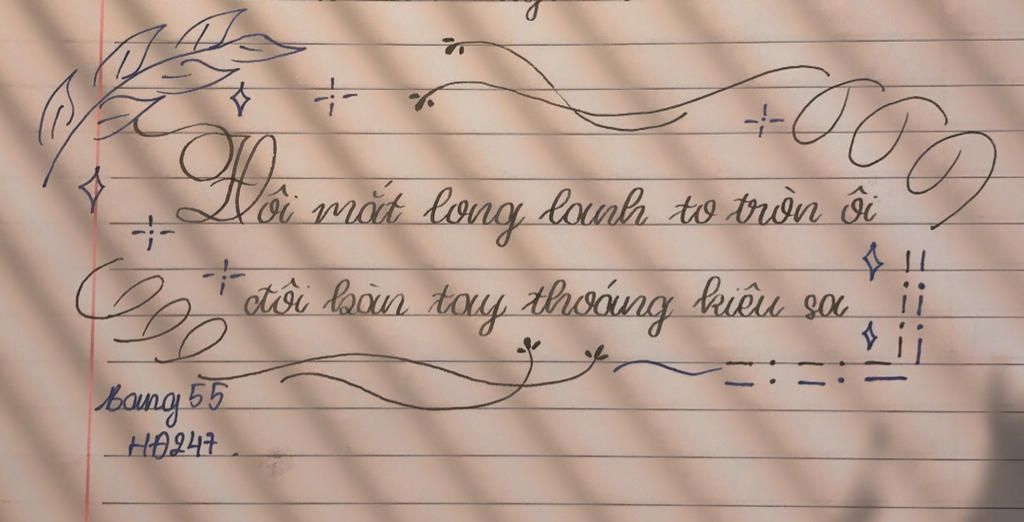 Đôi mắt long lanh to tròn ôi
đôi bàn tay thoáng kiêu sa
Bang 55
HĐ247.